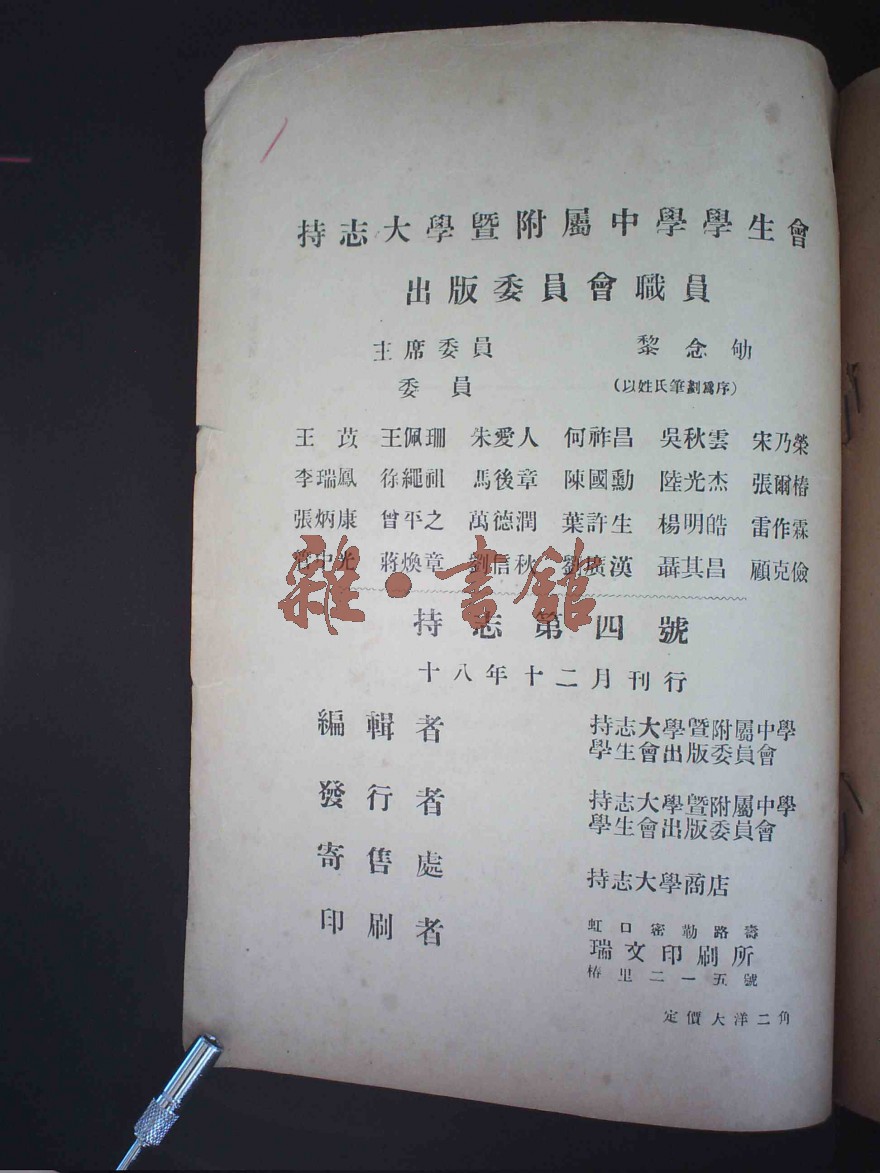 持志大學暨附屬中學學生會
出版委員會職員
主席委員 黎念劬
委員 (以姓氏筆劃爲序)
王苡 王佩珊 朱愛人 何祚昌 吳秋雲 宋乃榮
李瑞鳳 徐繩祖 馬後章 陳國勳 陸光杰 張爾椿
張炳康 曾平之 萬德潤 葉許生 楊明皓 雷作霖
管中光 蔣煥章 劉信秋 劉廣漢 聶其昌 顧克儉
雜·書館
持志第四號
十八年十二月刊行
編輯者 持志大學暨附屬中學
學生會出版委員會
發行者 持志大學暨附屬中學
學生會出版委員會
寄售處 持志大學商店
印刷者 虹口密勒路壽
瑞文印刷所
椿里二一五號
定價大洋二角